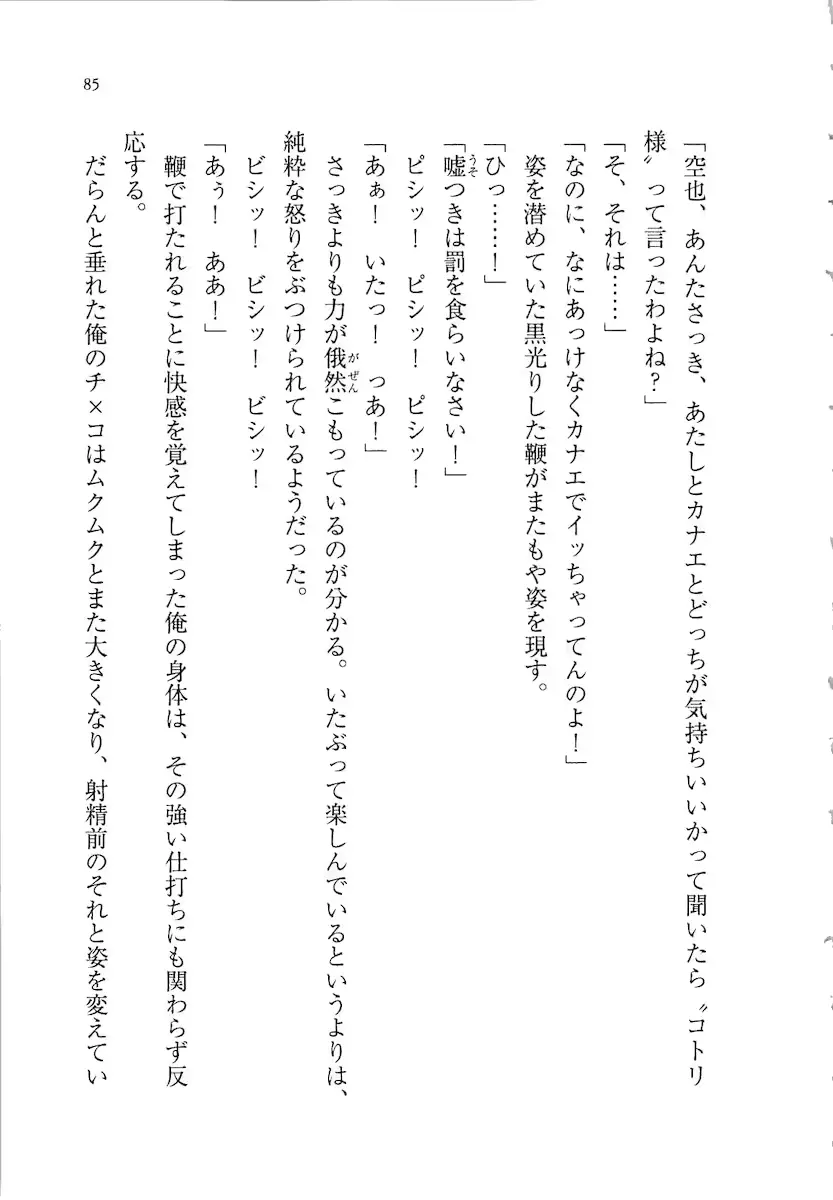 85
「空也、あんたさっき、あたしとカナエとどっちが気持ちいいかって聞いたら〝コトリ
様〟って言ったわよね?」
「そ、それは……」
「なのに、なにあっけなくカナエでイッちゃってんのよ!」
姿を潜めていた黒光りした鞭がまたもや姿を現す。
「ひっ……!」
「嘘つきは罰を食らいなさい!」
ピシッ! ピシッ! ピシッ!
「あぁ! いたっ! っあ!」
さっきよりも力が俄然こもっているのが分かる。いたぶって楽しんでいるというよりは、
純粋な怒りをぶつけられているようだった。
ビシッ! ビシッ! ビシッ!
「あぅ! ああ!」
鞭で打たれることに快感を覚えてしまった俺の身体は、その強い仕打ちにも関わらず反
応する。
だらんと垂れた俺のチ×コはムクムクとまた大きくなり、射精前のそれと姿を変えてい